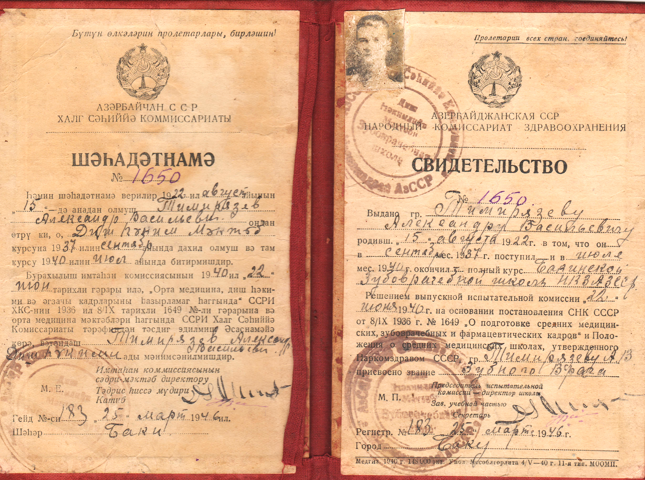 Бүтүн өлкәләрин пролетарлары, бирләшин!
АЗӘРБАЙҸАН С С Р
ХАЛГ СӘҺИЙӘ КОММИССАРИАТЫ
ШӘҺАДӘТНАМӘ
№ 1650
Һәнин шәһадәтнамә верилир 1922 ил август айынын
15-дә анадан олмуш Тимирязев
Александр Васильевич ондан
өтрү ки, о, Диш һәким Мәктәб
курсуна 1937 илин сентябр айында дахил олмуш вә там
курсу 1940 илин июл айында битирмишдир.
Бурахылыш имтаһан комиссиясынын 1940 ил 22
июн тарихли гәрары илә, "Орта медицина, диш һәки-
ми вә әғзачы кадрларыны һазырламаг һаггында" ССРИ
ХКС-нин 1936 нҹы ил тарихли 1649 №-ли гәрарына вә
орта медицина мәктәбләри һаггында ССРИ Халг Сәһиййә
Комиссариаты тәрәфиндән тәсдиг едилмиш Әсаснамәйә
көрә, вәтәндаш Тимирязев Александр
Васильевич
ады мәнимсәнилмишдир.
Имтаһан комиссиясынын
сәдри-мәктәб директору
М. Е.
Тәдрис һиссә мүдири
Катиб
Гейд №-си 183 25 март 1946 ил.
Шәһәр Баки
Пролетарии всех стран, соединяйтесь!
АЗЕРБАЙДЖАНСКАЯ ССР
НАРОДНЫЙ КОМИССАРИАТ ЗДРАВООХРАНЕНИЯ
СВИДЕТЕЛЬСТВО
№ 1650.
Выдано гр. Тимирязеву
Александру Васильевичу
родивш. 15 августа 1922 г. в том, что он
в сентяб. мес. 1937 г. поступил и в июле
мес. 1940 г. окончил полный курс Бакинской
Зубоврачебной школы НКЗ АзССР
Решением выпускной испытательной комиссии 22
июня 1940 г. на основании постановления СНК СССР
от 8/IX 1936 г. № 1649 „О подготовке средних медицин-
ских, зубоврачебных и фармацевтических кадров" и Поло-
жения о средних медицинских школах, утвержденного
Наркомздравом СССР, гр. Тимирязеву А В
присвоено звание Зубного Врача
Председатель испытательной
комиссии—директор школы
М. П.
Зав. учебной частью
Секретарь
Регистр. № 183 25 март 1946 г.
Город Баку